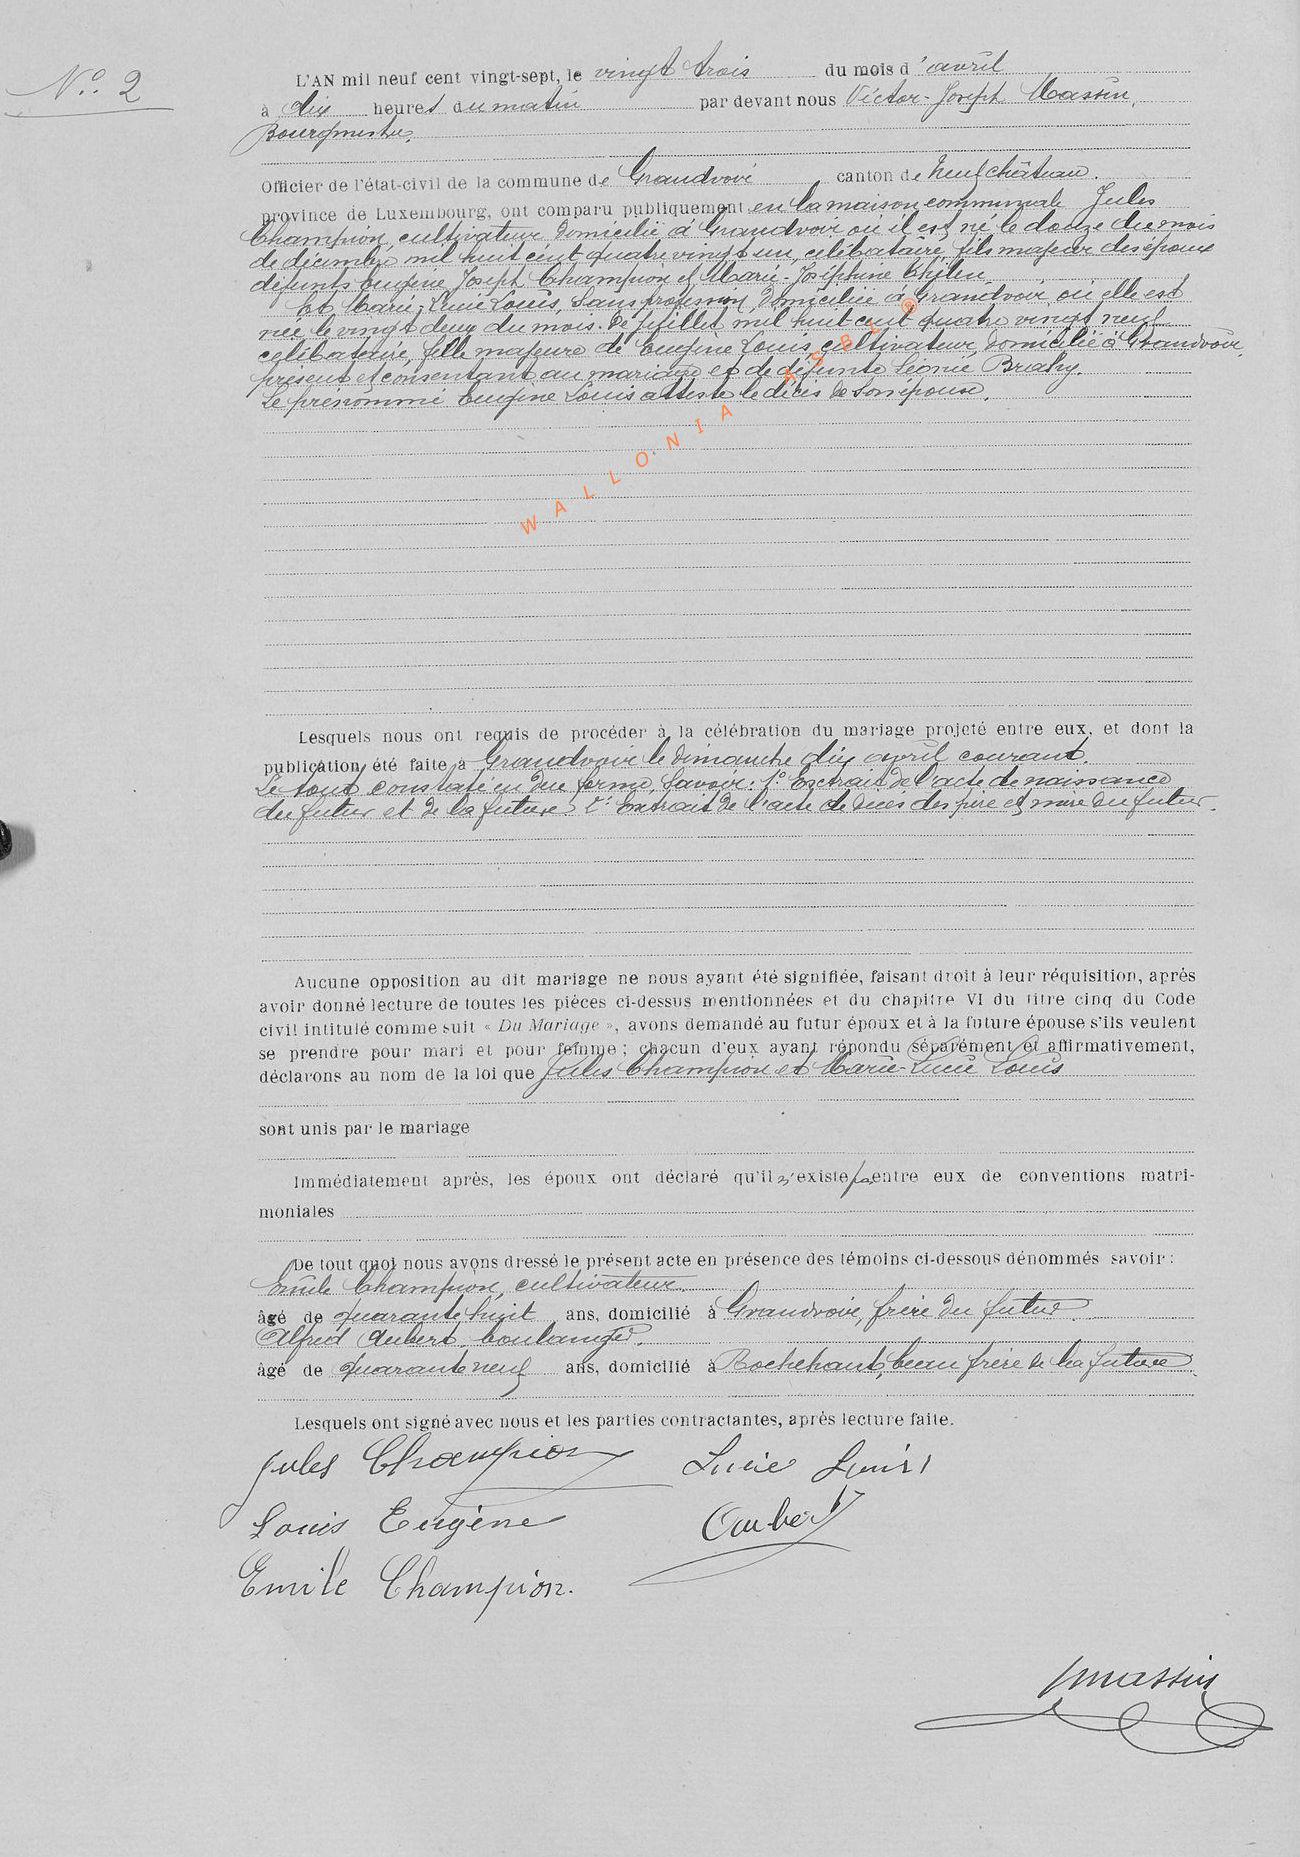 N° 2
L'AN mil neuf cent vingt-sept, le vingt trois du mois d'avril
à dix heures du matin par devant nous Victor-Joseph Massin,
Bourgmestre,
Officier de l'état-civil de la commune de Grandvoir canton de Neufchâteau.
province de Luxembourg, ont comparu publiquement en la maison communale Jules
Champion, cultivateur domicilié à Grandvoir où il est né le douze du mois
de décembre mil huit cent quatre vingt un, célibataire, fils majeur des époux
défunts Eugène Joseph Champion et Marie-Joséphine
Et Marie, Lucie Louis, sans profession, domiciliée à Grandvoir où elle est
née le vingt deux du mois de juillet mil huit cent quatre vingt neuf
célibataire, fille majeure de Eugène Louis, cultivateur, domicilié à Grandvoir,
présent et consentant au mariage et de défunte Léonie
Le prénommé Eugène Louis atteste le décès de son épouse.
WALLONIA ASBL ©
Lesquels nous ont requis de procéder à la célébration du mariage projeté entre eux, et dont la
publication été faite à Grandvoir le dimanche dix avril courant.
Le tout constaté en due forme, savoir: 1° Extrait de l'acte de naissance
du futur et de la future. 2° Extrait de l'acte de décès des père et mère du futur.
Aucune opposition au dit mariage ne nous ayant été signifiée, faisant droit à leur réquisition, après
avoir donné lecture de toutes les pièces ci-dessus mentionnées et du chapitre VI du titre cinq du Code
civil intitulé comme suit « Du Mariage », avons demandé au futur époux et à la future épouse s'ils veulent
se prendre pour mari et pour femme; chacun d'eux ayant répondu séparément et affirmativement,
déclarons au nom de la loi que Jules Champion et Marie-Lucie Louis
sont unis par le mariage
Immédiatement après, les époux ont déclaré qu'il n'existe pas entre eux de conventions matri-
moniales
De tout quoi nous avons dressé le présent acte en présence des témoins ci-dessous dénommés savoir:
Emile Champion, cultivateur
âgé de quarante huit ans, domicilié à Grandvoir, frère du futur
Alfred Aubert, boulanger
âgé de quarante neuf ans, domicilié à Rochehaut, beau frère de la future
Lesquels ont signé avec nous et les parties contractantes, après lecture faite.
Jules Champion Lucie Louis
Louis Eugène Aubert
Emile Champion.
Massin